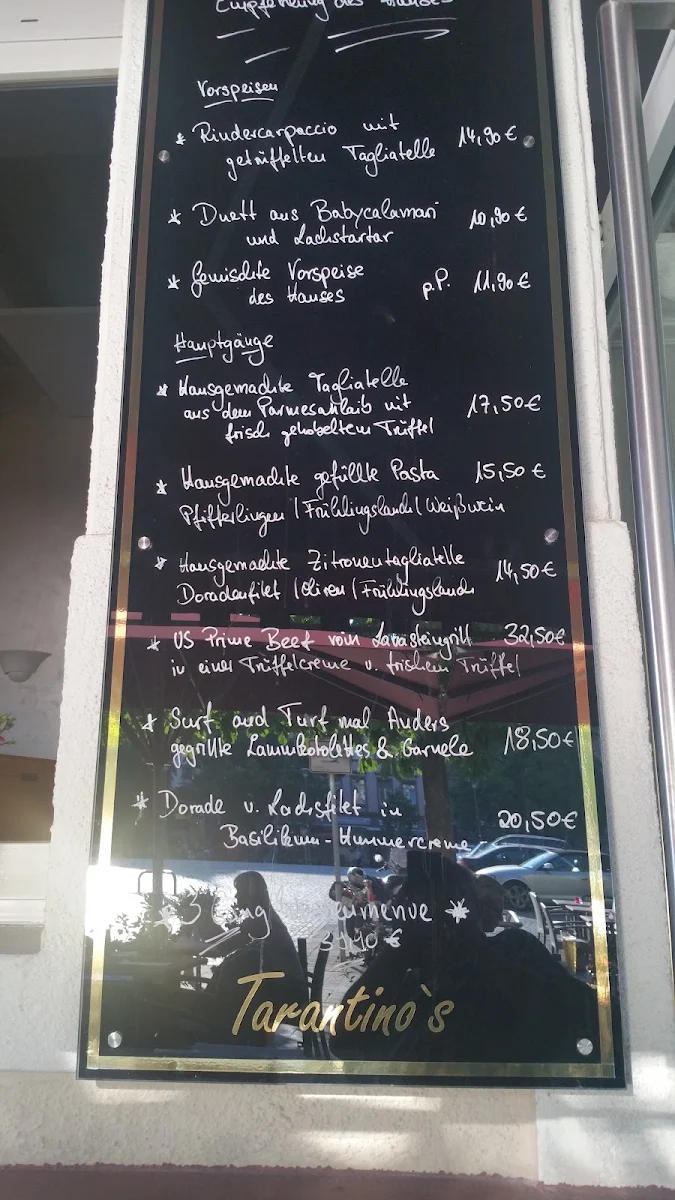 Empfehlung des Hauses
Vorspeisen
* Rindercarpaccio mit 14,90 €
getrüffelten Tagliatelle
* Duett aus Babycalamari 10,90 €
und Lachstartar
* Gemischte Vorspeise
des Hauses p.P. 11,90 €
Hauptgänge
* Hausgemachte Tagliatelle
aus dem Parmesanlaib mit 17,50 €
frisch gehobeltem Trüffel
* Hausgemachte gefüllte Pasta 15,50 €
Pfifferlingen / Frühlingslauch / Weißwein
* Hausgemachte Zitronentagliatelle 14,50 €
Doradenfilet / Oliven / Frühlingslauch
* US Prime Beef vom Lavasteingrill 32,50 €
in einer Trüffelcreme u. frischem Trüffel
* Surf and Turf mal Anders
gegrillte Lammkoteletts & Garnele 18,50 €
* Dorade u. Lachsfilet in 20,50 €
Basilikum-Hummercreme
* 3 Gang menue *
Tarantino`s